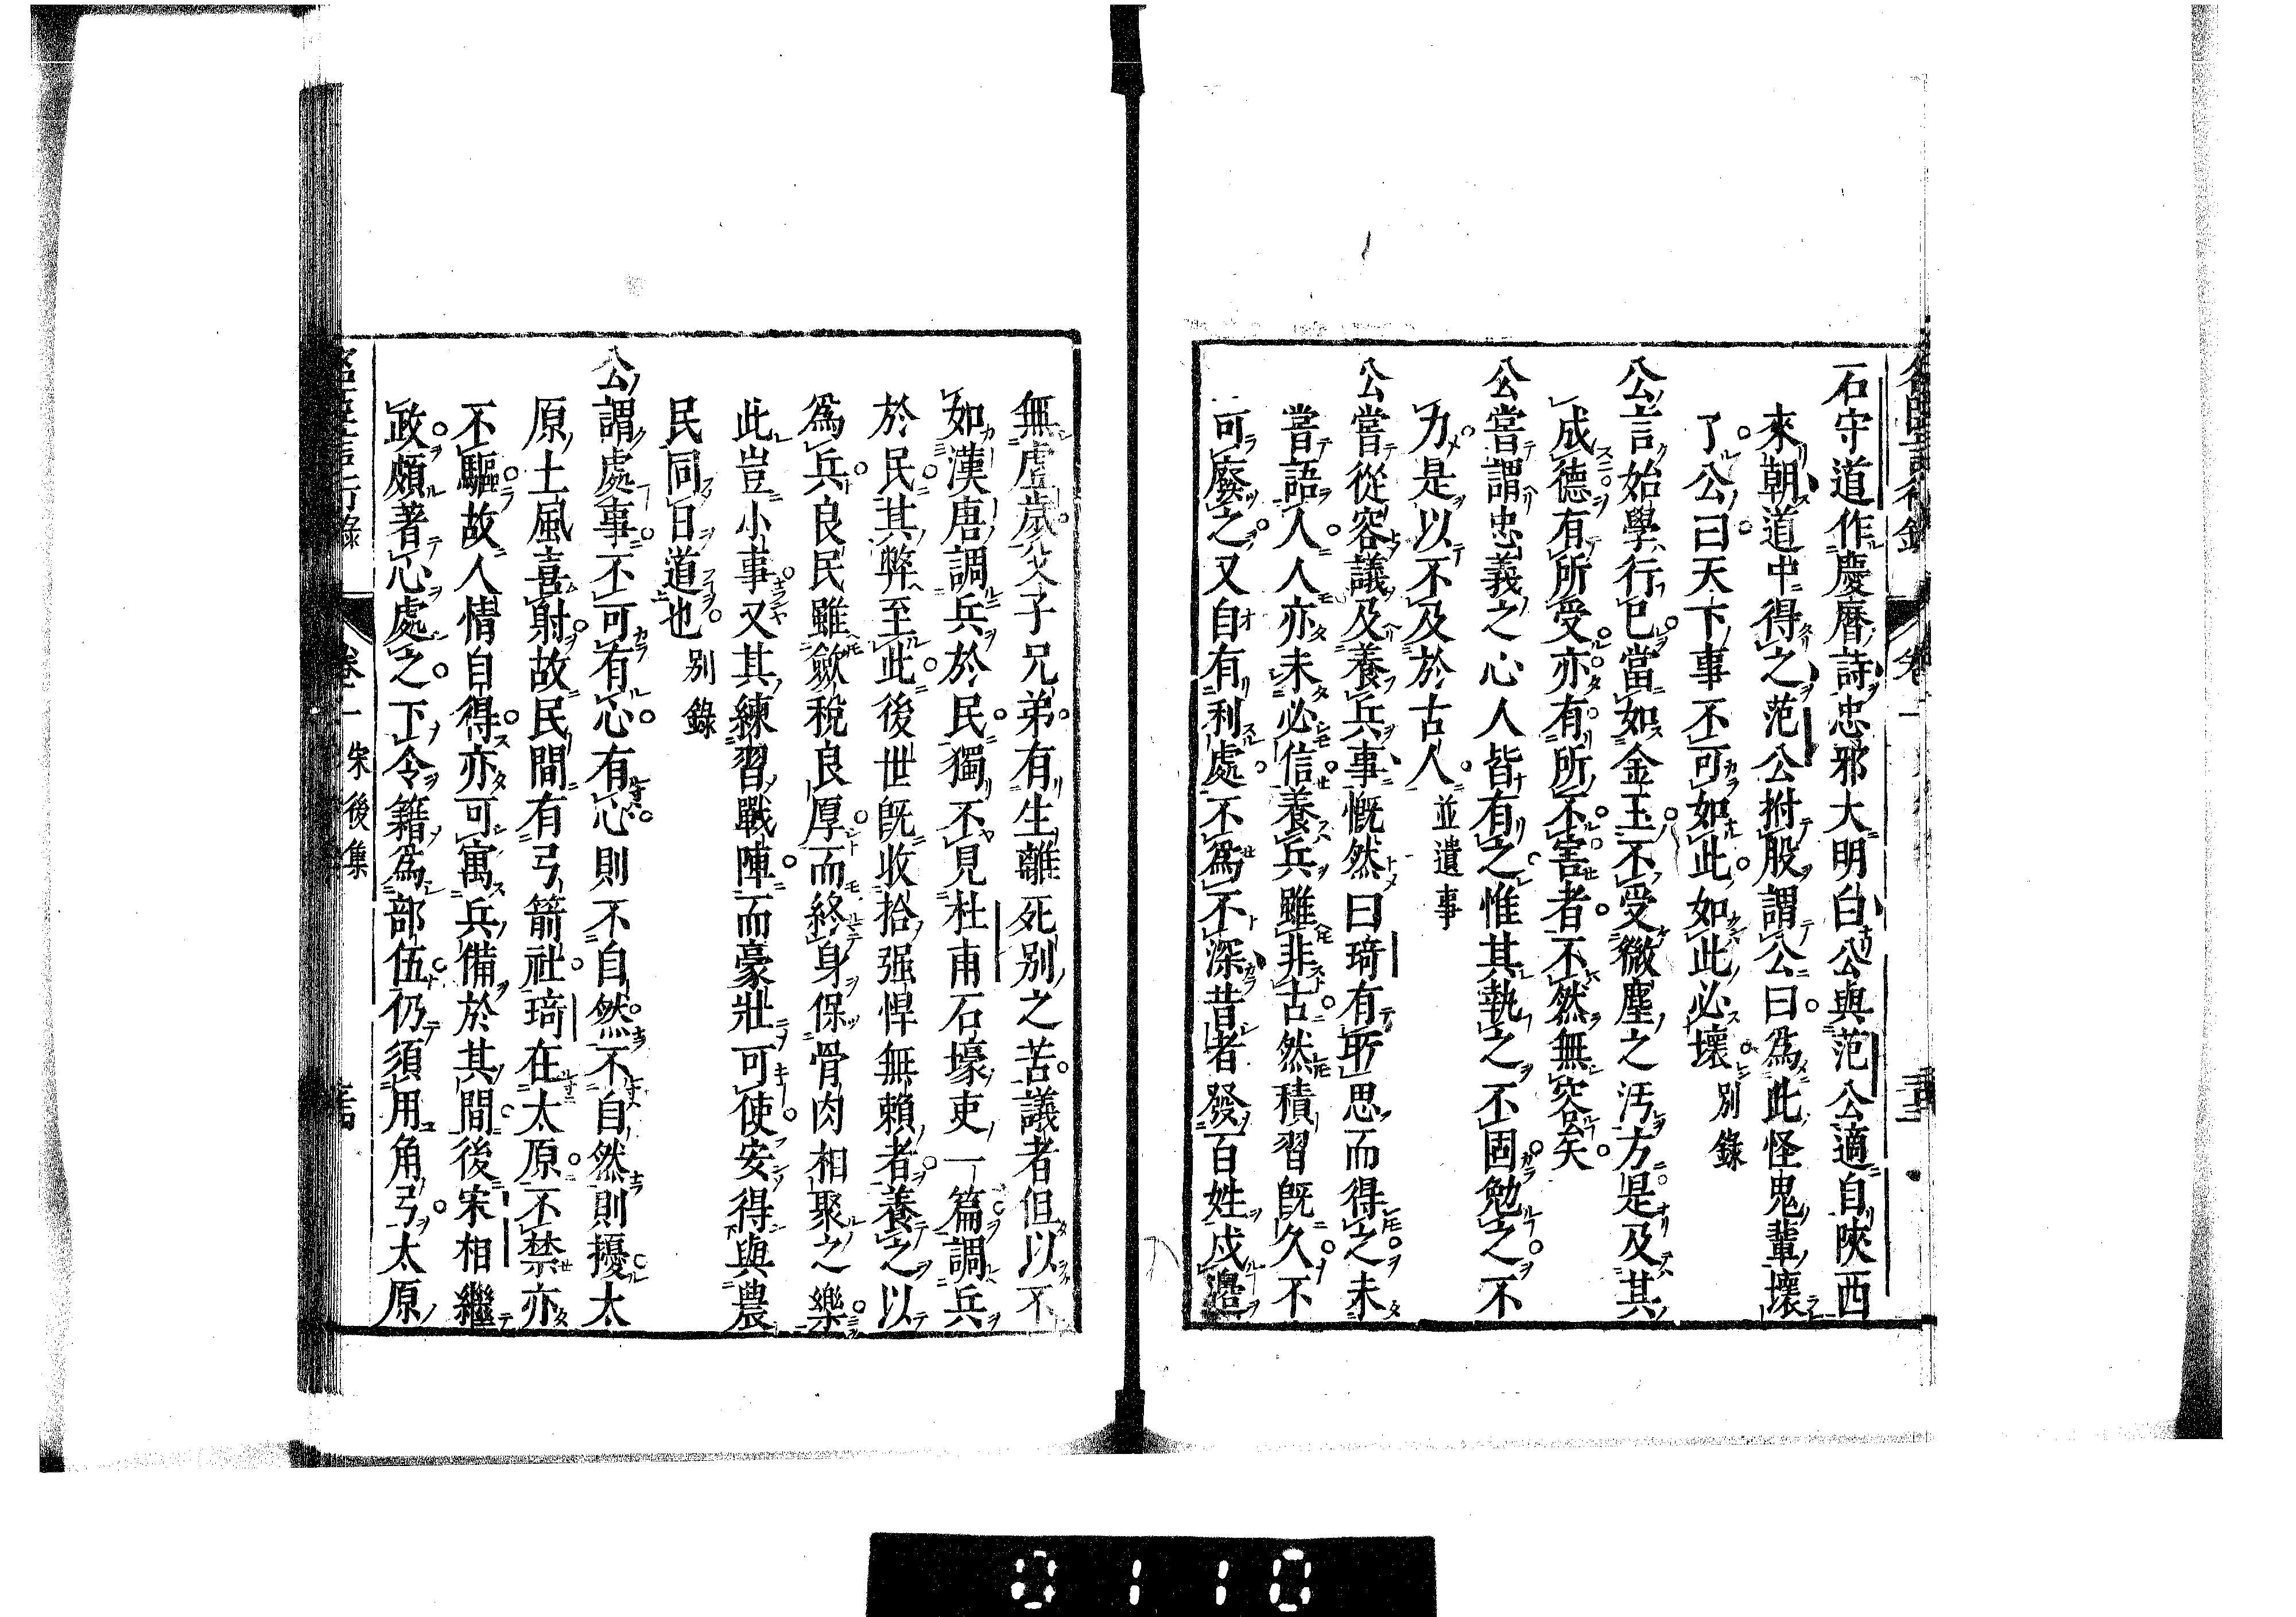 石守道作慶曆詩忠邪大明白公與范公適自陝西
來朝道中得之范公拊股謂公曰爲此怪鬼輩壞
了公曰天下事不可如此如此必壞別錄
公言始學行已當如金玉不受微塵之汚方是及其
成德有所受亦有所不害者不然無容矣
公嘗謂忠義之心人皆有之惟其執之不固勉之不
力是以不及於古人並遺事
公嘗從容議及養兵事慨然曰琦有所思而得之未
嘗語人人亦未必信養兵雖非古然積習旣久不
可廢之又自有利處不爲不深昔者發百姓戍邊
無虛歲父子兄弟有生離死別之苦議者但以不
如漢唐調兵於民獨不見杜甫石壕吏一篇調兵
於民其弊至此後世旣收拾强悍無賴者養之以
爲兵良民雖歛稅良厚而終身保骨肉相聚之樂
此豈小事又其練習戰陣而豪壯可使安得與農
民同日道也別錄
公謂處事不可有心有心則不自然不自然則擾太
原土風喜射故民間有弓箭社琦在太原不禁亦
不驅故人情自得亦可寓兵備於其間後宋相繼
政頗著心處之下令籍爲部伍仍須用角弓太原
宋後集
0110